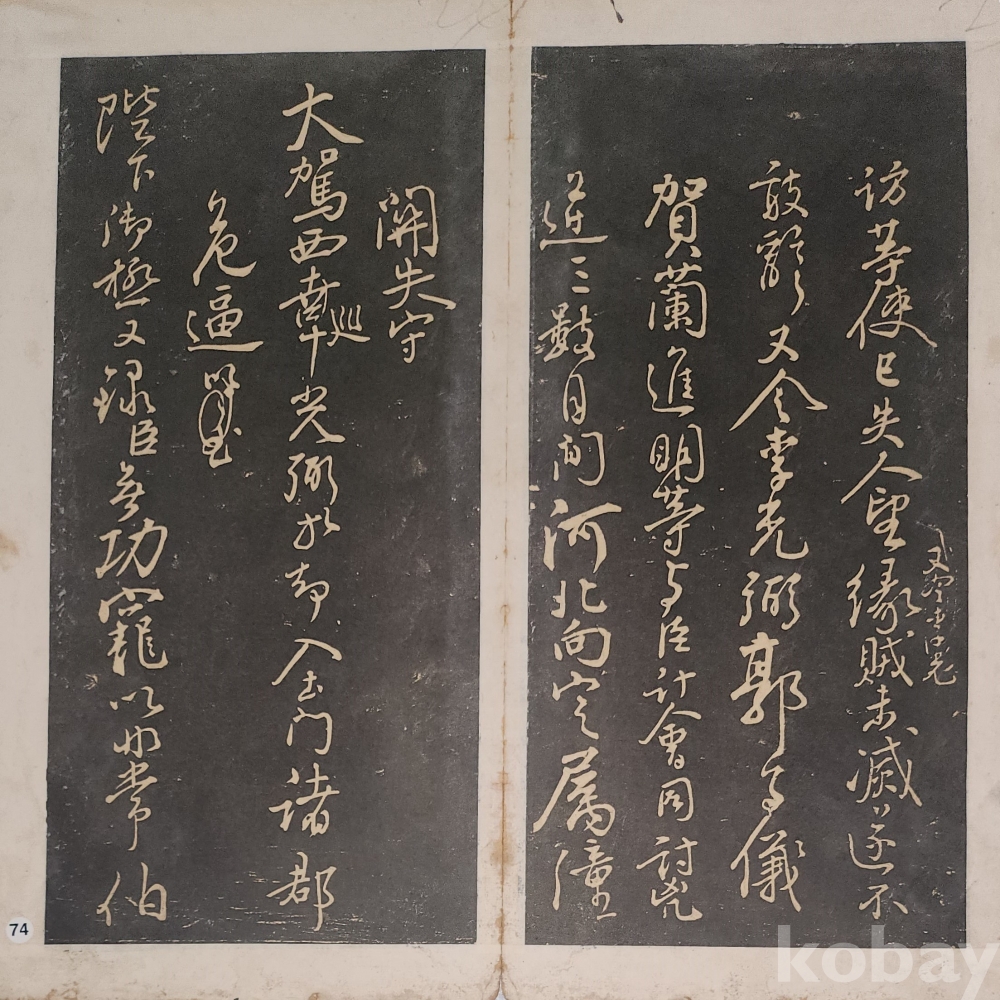 訪等使已失人望緣賊未滅遂不
敢辭又令李光弼郭子儀
賀蘭進明等与臣計會同討兇
逆三數月間河北向定屬潼
關失守
大駕西幸巡光弼却入土门諸郡
危逼
陛下御極又録臣無功寵以常伯
74
kobay